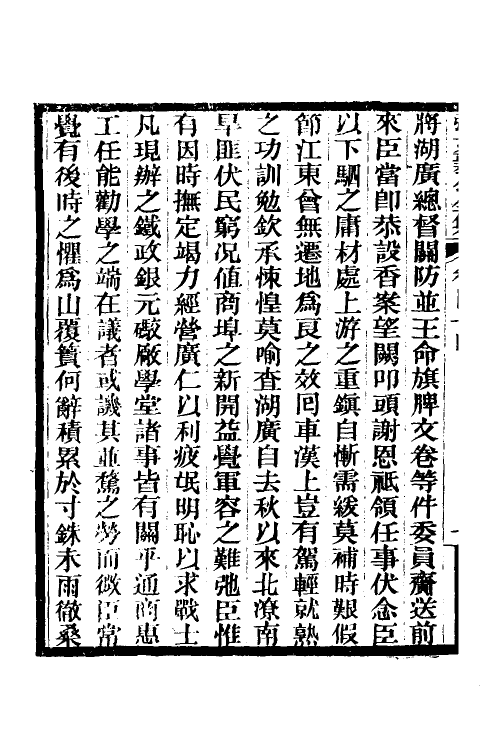 將湖廣總督關防並王命旗牌文卷等件委員齎送前
來臣當卽恭設香案望闕叩頭謝恩祗領任事伏念臣
以下駟之庸材處上游之重鎭自慚需緩莫補時艱假
節江東曾無遷地爲良之效囘車漢上豈有駕輕就熟
之功訓勉欽承悚惶莫喻查湖廣自去秋以來北潦南
旱匪伏民窮况値商埠之新開益覺軍容之難弛臣惟
有因時撫定竭力經營廣仁以利疲氓明恥以求戰士
凡現辦之鐵政銀元礮廠學堂諸事皆有關乎通商惠
工任能勸學之端在議者或譏其並騖之勞而微臣常
覺有後時之懼爲山覆簣何辭積累於寸銖未雨徹桑